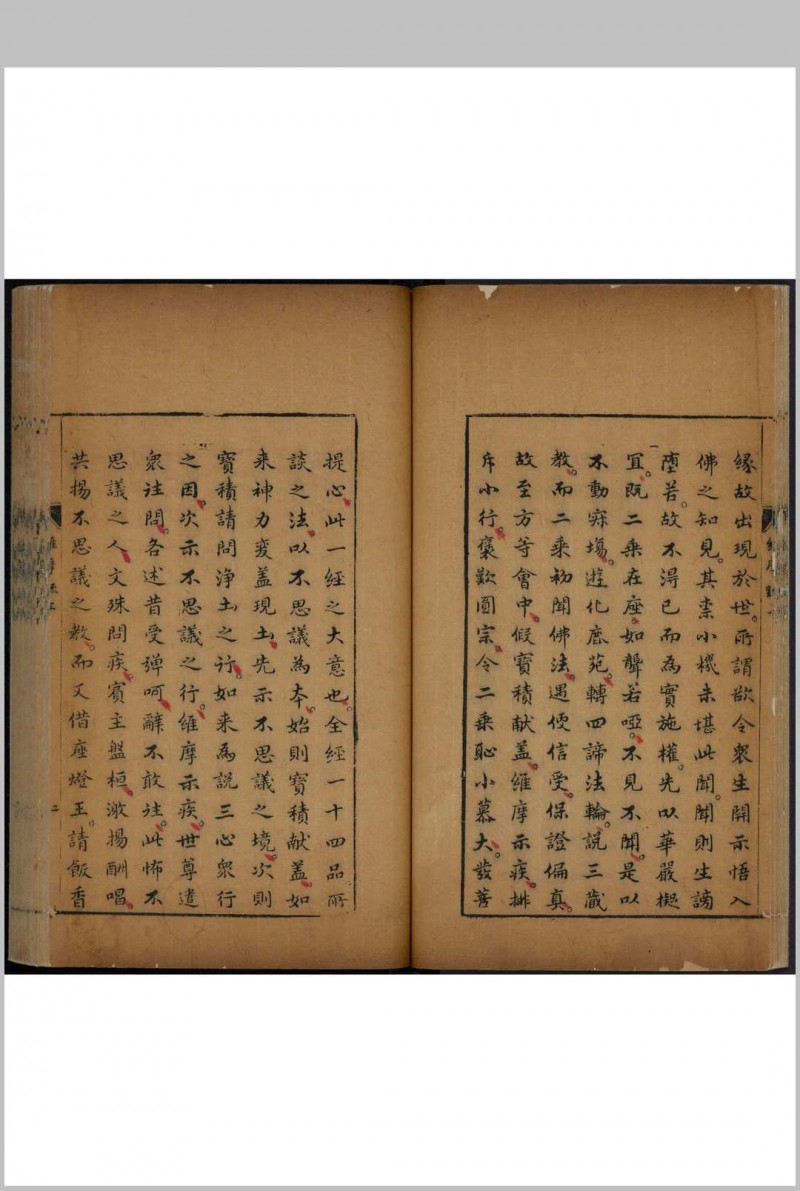 緣故出現於世。所謂欲令衆生開示悟入
佛之知見。其柰小機未堪此聞。聞則生謗
墮苦。故不淂已而為實施權。先以華嚴擬
宜。既二乘在座。如聾若啞。不見不聞。是以
不動寂塲。遊化鹿苑。轉四諦法輪。說三藏
教。而二乘初聞佛法。遇便信受。保證偏真。
故至方等會中。假寶積献盖。維摩示疾。排
斥小行。褒歎圓宗。令二乘恥小慕大。發菩
提心。此一經之大意也。全經一十四品。所
談之法。以不思議為本。始則寶積献盖。如
来神力变盖現土。先示不思議之境。次則
寶積請問淨土之行。如来為説三心衆行
之因。次示不思議之行。維摩示疾。世尊遣
衆往問。各述昔受彈呵。辭不敢往。此怖不
思議之人。文殊問疾。賓主盤桓。激揚酬唱。
共揚不思議之教。而又借座燈王。請飯香
二